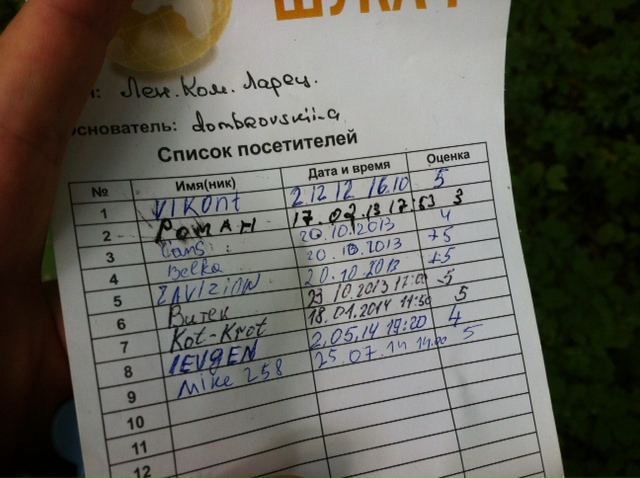 ШУКА
: Лен. Ком. Ларец.
основатель: dombrovskii-a
Список посетителей
№ Имя(ник) Дата и время Оценка
1 VIKont 2 12 12 16.10 5
2 РОМАН 17.09.13 17:53 3
3 20.10.2013 4
4 Belka 20.10.2013 +5
5 ZAVIZION 20.10.2013 +5
6 Витек 23.10.2013 5
7 Kot-Krot 18.01.2014 11:30 5
8 IEVGEN 2.05.14 19:20 4
9 Mike 258 25.07.14 14.00 5
10
11
12